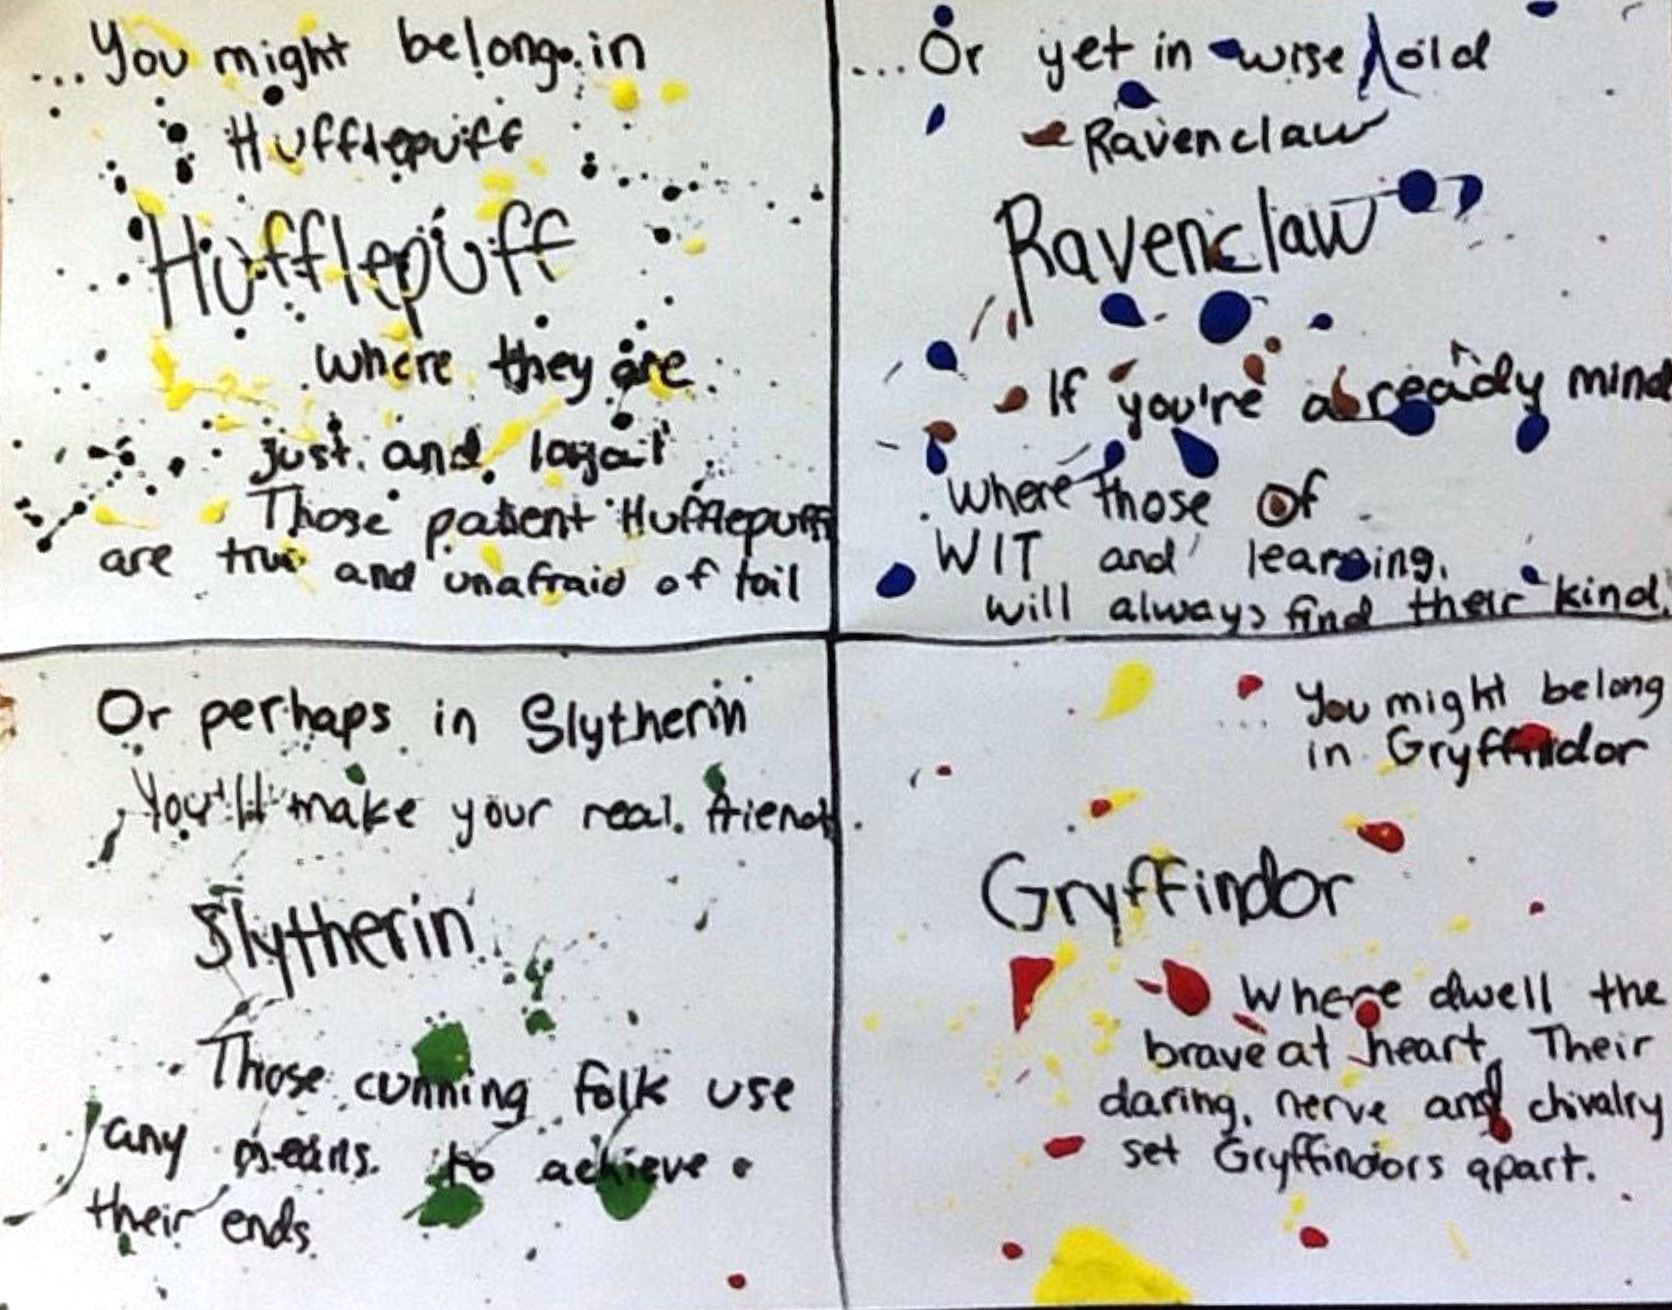 ...You might belong in
Hufflepuff
Hufflepuff
where they are
just and loyal
Those patient Hufflepuff
are true and unafraid of toil
...Or yet in wise old
Ravenclaw
Ravenclaw
If you're a ready mind
where those of
WIT and learning.
will always find their kind.
Or perhaps in Slytherin
You'll make your real friend
Slytherin
Those cunning folk use
any means to achieve
their ends.
... You might belong
in Gryffindor
Gryffindor
Where dwell the
brave at heart, Their
daring, nerve and chivalry
set Gryffindors apart.